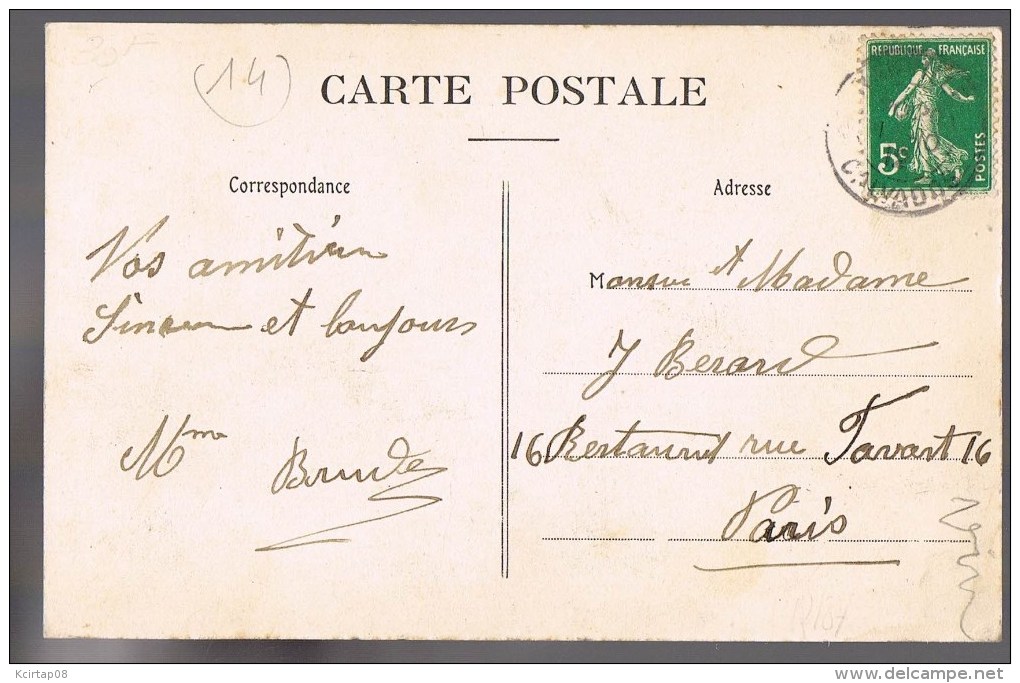 (14)
CARTE POSTALE
REPUBLIQUE FRANÇAISE
5c
POSTES
CALVADOS
Correspondance
Vos amitiés
Sincères et toujours
Mme
Adresse
Monsieur et Madame
J Berard
16 Restaurant rue Favart 16
Paris
Kcirtap08
delcampe.net